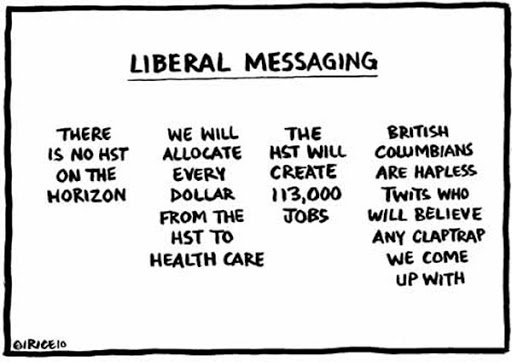 LIBERAL MESSAGING
THERE
IS NO HST
ON THE
HORIZON
WE WILL
ALLOCATE
EVERY
DOLLAR
FROM THE
HST TO
HEALTH CARE
THE
HST WILL
CREATE
113,000
JOBS
BRITISH
COLUMBIANS
ARE HAPLESS
TWITS WHO
WILL BELIEVE
ANY CLAPTRAP
WE COME
UP WITH